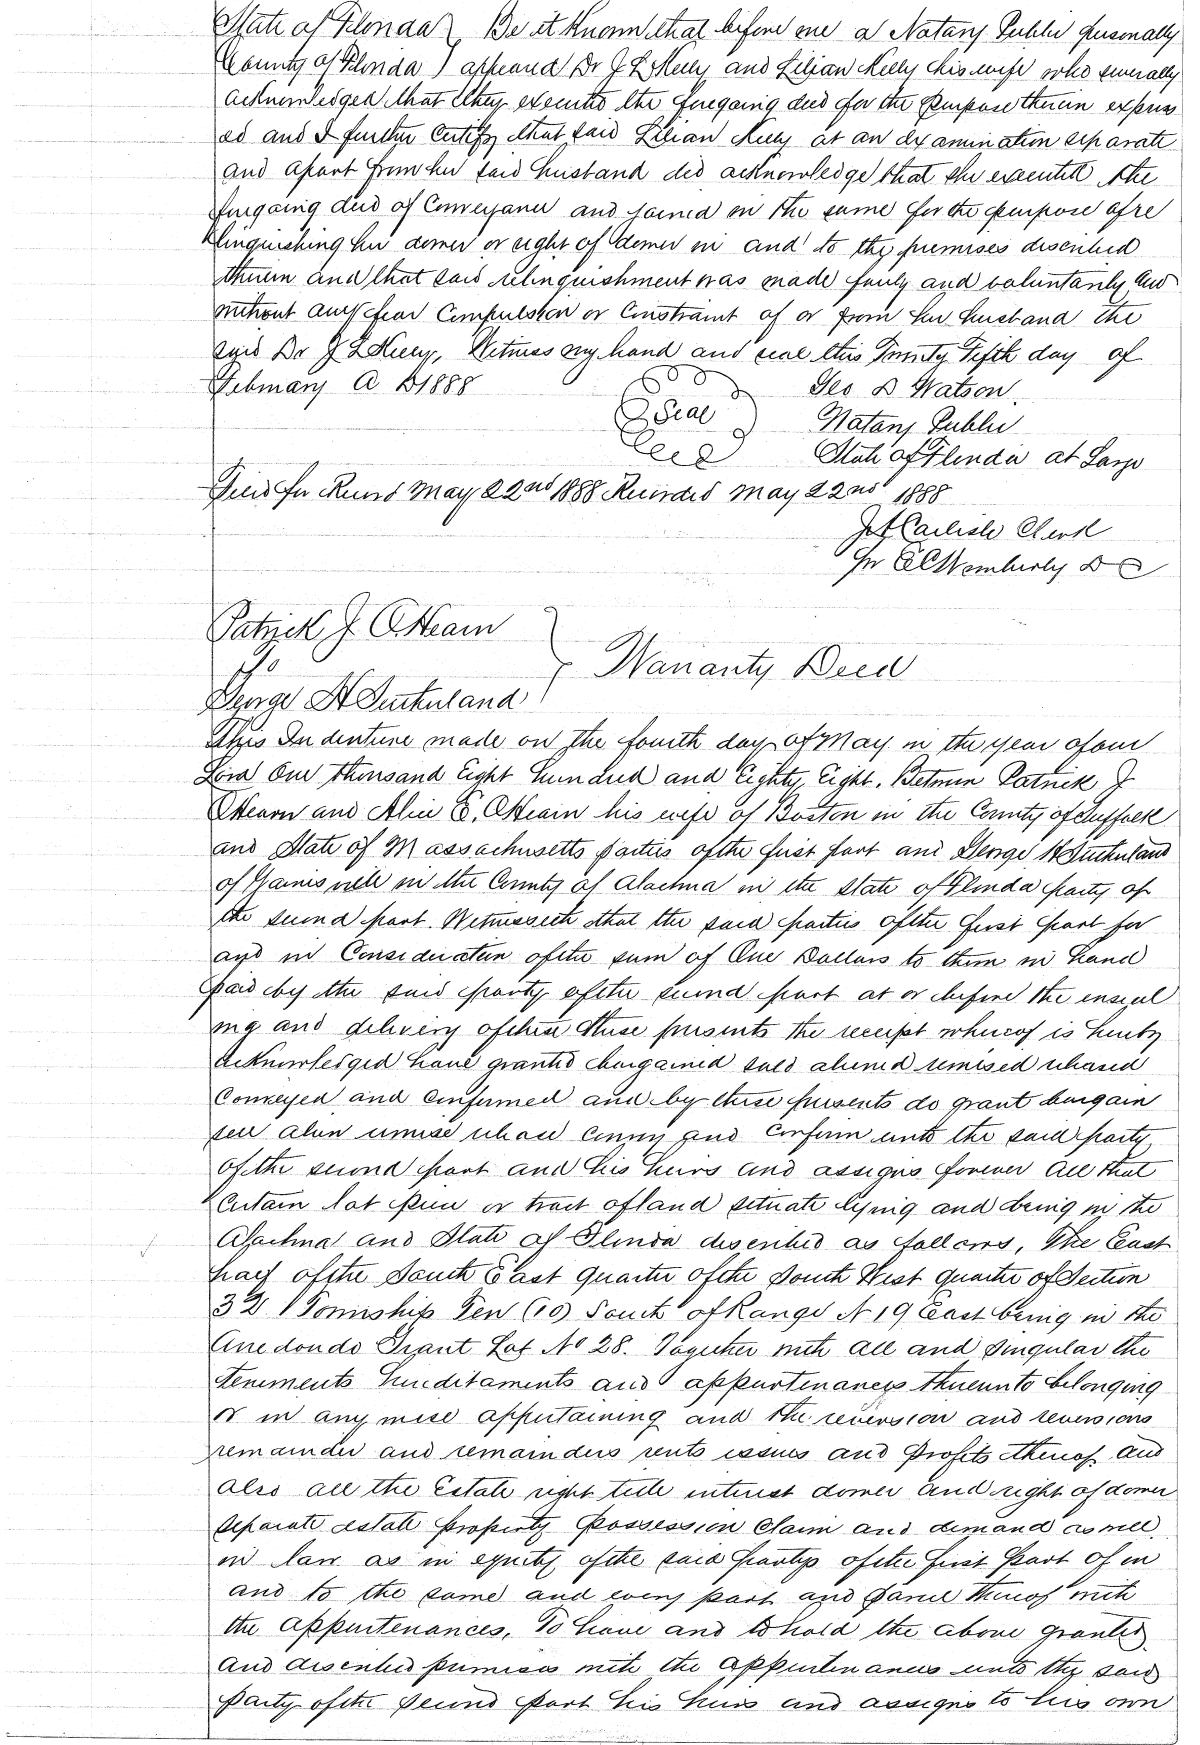 State of Florida } Be it known that before me a Notary Public personally
County of Florida ) appeard Dr J L Kelly and Lilian Kelly his wife who severally
acknowledged that they executed the foregoing deed for the purpose therein express
ed and I further Certify that said Lilian Kelly at an examination separate
and apart from her said husband did acknowledge that she executed the
foregoing deed of Conveyance and joined in the same for the purpose of re
linquishing her dower or right of dower in and to the premises described
therein and that said relinquishment was made freely and voluntarily and
without any fear Compulsion or Constraint of or from her husband the
said Dr J L Kelly, Witness my hand and seal this Twenty Fifth day of
February A D 1888 Geo D Watson
Seal Notary Public
State of Florida at Large
Filed for Record May 22nd 1888 Recorded May 22nd 1888
Carlisle Clerk
Pr E C Wemberly D C
Patrick J. O.Hearn
To } Warranty Deed
George H Sutherland
This Indenture made on the fourth day of May in the year of our
Lord One thousand Eight hundred and Eighty, Eight. Between Patrick J
OHearn and Alice E. OHearn his wife of Boston in the County of Suffolk
and State of Massachusetts parties of the first part and George H Sutherland
of Gainisville in the County of Alachua in the State of Florida party of
the second part. Witnesseth that the said parties of the first part for
and in Consideration of the sum of One Dollars to them in hand
paid by the said party of the second part at or before the enseal
ing and delivery of these these presents the receipt whereof is hereby
acknowledged have granted bargained sold aliened remised released
Conveyed and Confirmed and by these presents do grant bargain
sell alien remise release convey and Confirm unto the said party
of the second part and his heirs and assigns forever all that
Certain lot piece or tract of land situate lying and being in the
Alachua and State of Florida described as follows, The East
half of the South East Quarter of the South West quarter of Section
32 Township Ten (10) South of Range N 19 East being in the
Arredondo Grant Lot No 28. Together with all and singular the
tenements hereditaments and appurtenances thereunto belonging
or in any wise appertaining and the reversion and reversions
remainder and remainders rents issues and profits thereof and
also all the Estate right title interest dower and right of dower
separate estate property possession claim and demand as well
in law as in equity of the said partys of the first part of in
and to the same and every part and parcel thereof with
the appurtenances, To have and to hold the above granted
and described premises with the appurtenances unto the said
party of the second part his heirs and assigns to his own